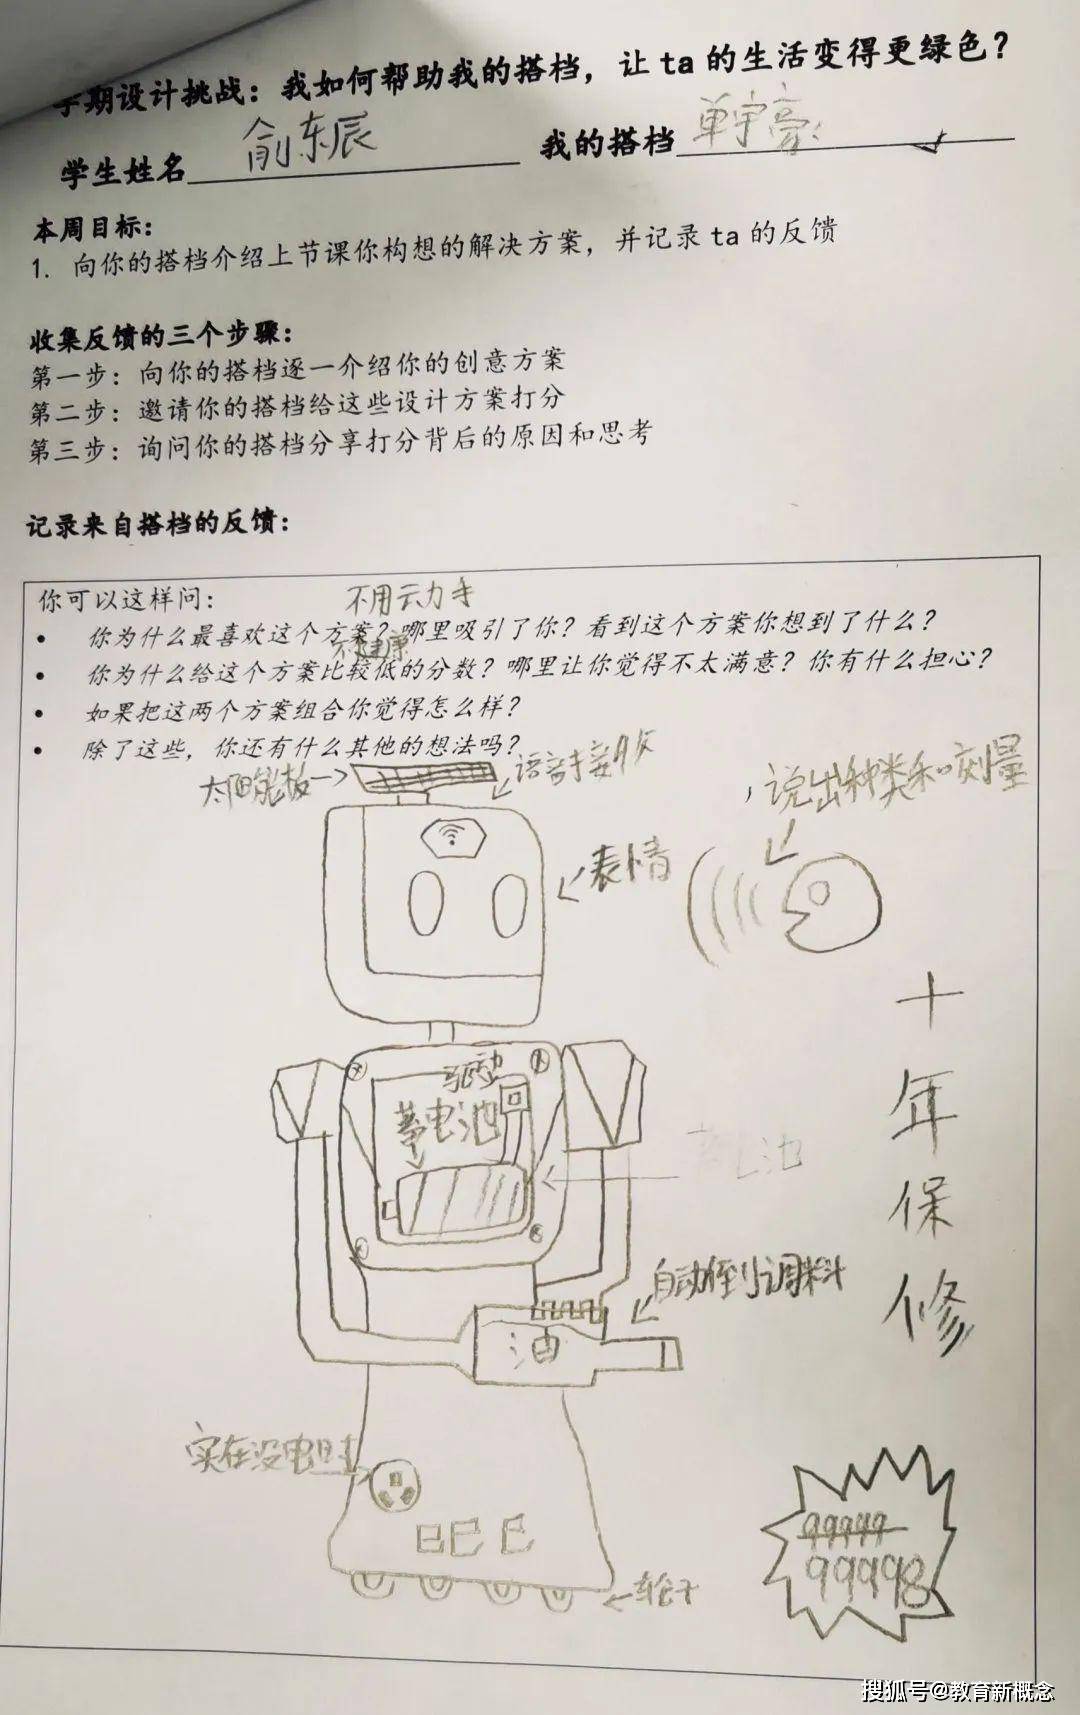 学期设计挑战：我如何帮助我的搭档，让 ta 的生活变得更绿色？
学生姓名 俞东辰 我的搭档 单宇豪
本周目标：
1. 向你的搭档介绍上节课你构想的解决方案，并记录 ta 的反馈
收集反馈的三个步骤：
第一步：向你的搭档逐一介绍你的创意方案
第二步：邀请你的搭档给这些设计方案打分
第三步：询问你的搭档分享打分背后的原因和思考
记录来自搭档的反馈：
你可以这样问：
不用云力手
• 你为什么最喜欢这个方案？哪里吸引了你？看到这个方案你想到了什么？
不健康
• 你为什么给这个方案比较低的分数？哪里让你觉得不太满意？你有什么担心？
• 如果把这两个方案组合你觉得怎么样？
• 除了这些，你还有什么其他的想法吗？
太阳能板
语音接收
说出种类和刻量
表情
驱动
蓄电池
十年保修
自动倒调料
油
实在没电时
巴巴巴
轮子
99999
99998
搜狐号@教育新概念